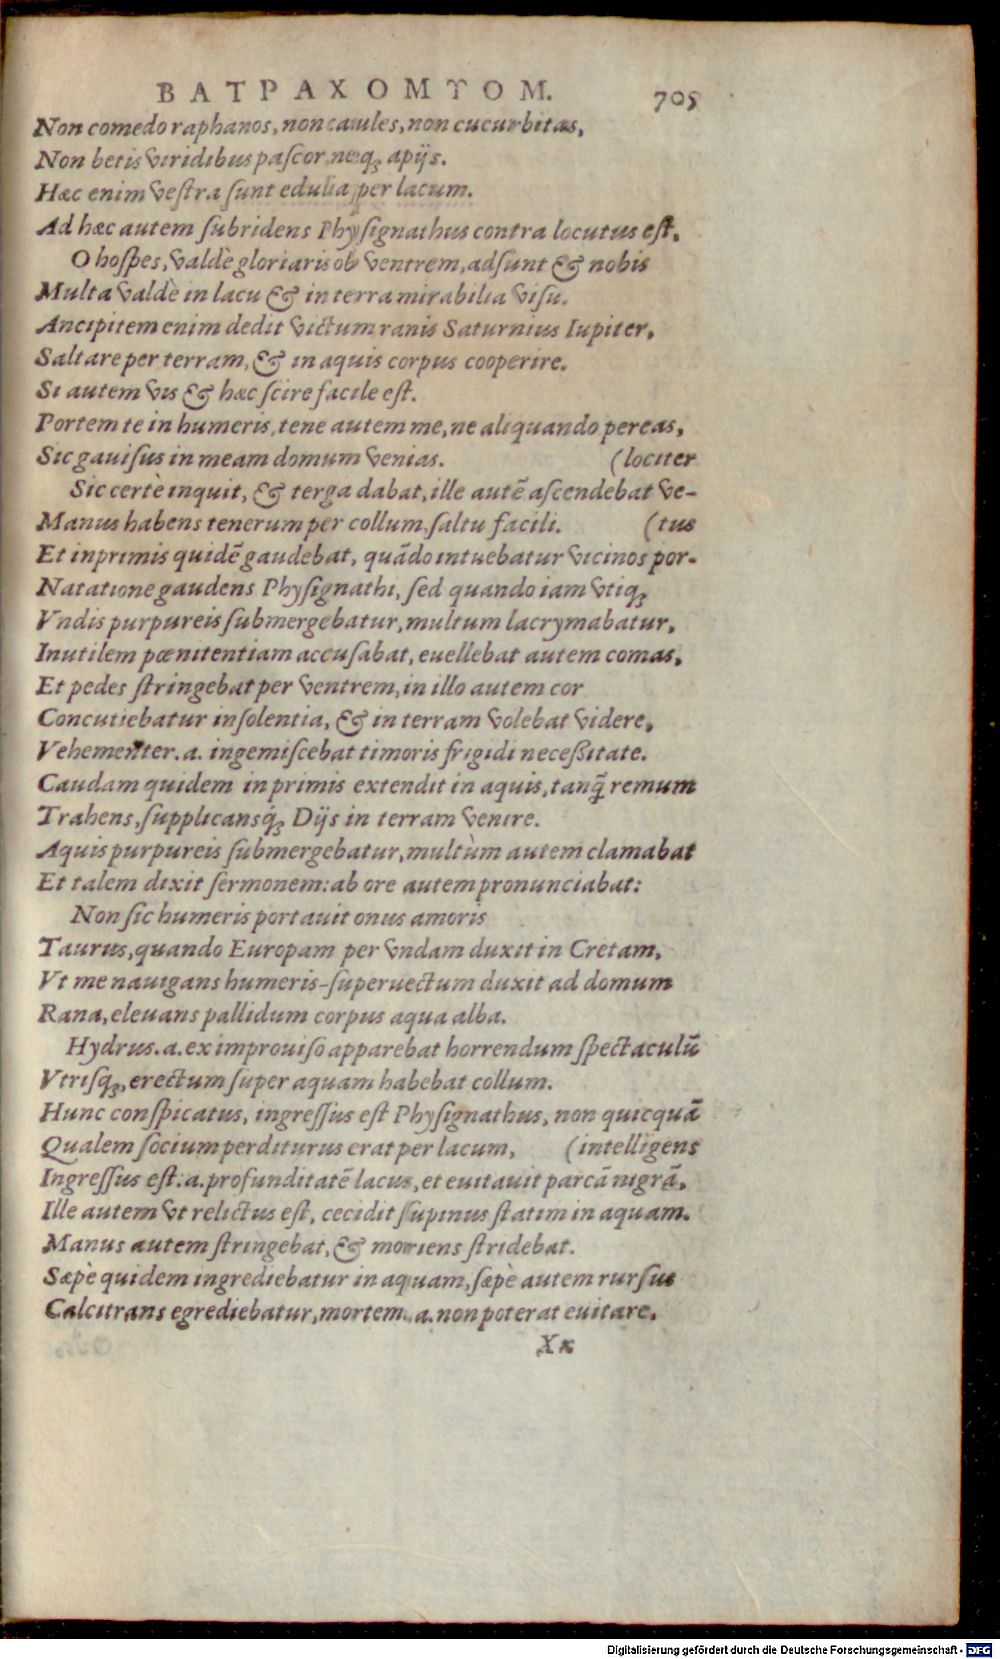 ΒΑΤΡΑΧΟΜΥΟΜ. 705
Non comedo raphanos, non caules, non cucurbitas,
Non betis viridibus pascor neq; apijs.
Hæc enim vestra sunt edulia per lacum.
Ad hæc autem subridens Physignathus contra locutus est.
O hospes, valdè gloriaris ob ventrem, adsunt & nobis
Multa valdè in lacu & in terra mirabilia visu.
Ancipitem enim dedit victum ranis Saturnius Iupiter,
Saltare per terram, & in aquis corpus cooperire.
Si autem vis & hæc scire facile est.
Portem te in humeris, tene autem me, ne aliquando pereas,
Sic gauisus in meam domum venias. (lociter
Sic certè inquit, & terga dabat, ille autē ascendebat ve-
Manus habens tenerum per collum, saltu facili. (tus
Et inprimis quidē gaudebat, quādo intuebatur vicinos por-
Natatione gaudens Physignathi, sed quando iam vtiq;
Vndis purpureis submergebatur, multum lacrymabatur,
Inutilem pœnitentiam accusabat, euellebat autem comas,
Et pedes stringebat per ventrem, in illo autem cor
Concutiebatur insolentia, & in terram volebat videre,
Vehementer .a. ingemiscebat timoris frigidi necessitate.
Caudam quidem inprimis extendit in aquis, tanq̃ remum
Trahens, supplicansq́; Dijs in terram venire.
Aquis purpureis submergebatur, multùm autem clamabat
Et talem dixit sermonem: ab ore autem pronunciabat:
Non sic humeris portauit onus amoris
Taurus, quando Europam per vndam duxit in Cretam,
Vt me nauigans humeris-superuectum duxit ad domum
Rana, eleuans pallidum corpus aqua alba.
Hydrus .a. ex improuiso apparebat horrendum spectaculū
Vtrisq;, erectum super aquam habebat collum.
Hunc conspicatus, ingressus est Physignathus, non quicquā
Qualem socium perditurus erat per lacum, (intelligens
Ingressus est .a. profunditatē lacus, et euitauit parcā nigrā.
Ille autem vt relictus est, cecidit supinus statim in aquam.
Manus autem stringebat, & moriens stridebat.
Sæpè quidem ingrediebatur in aquam, sæpè autem rursus
Calcitrans egrediebatur, mortem .a. non poterat euitare.
Xx
Digitalisierung gefördert durch die Deutsche Forschungsgemeinschaft - DFG